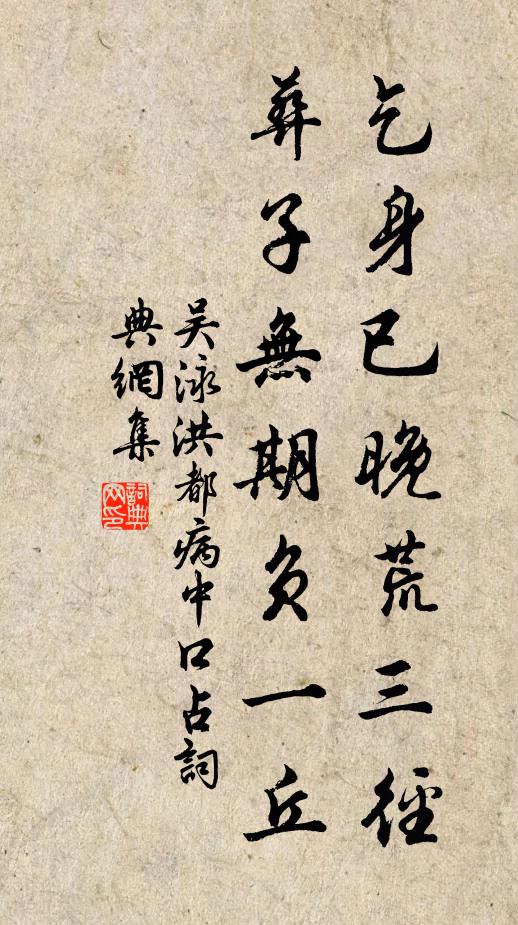 乞身已晚荒三径
葬子無期負一丘
吴泳洪都病中口占詞
典網集
詞典
网印